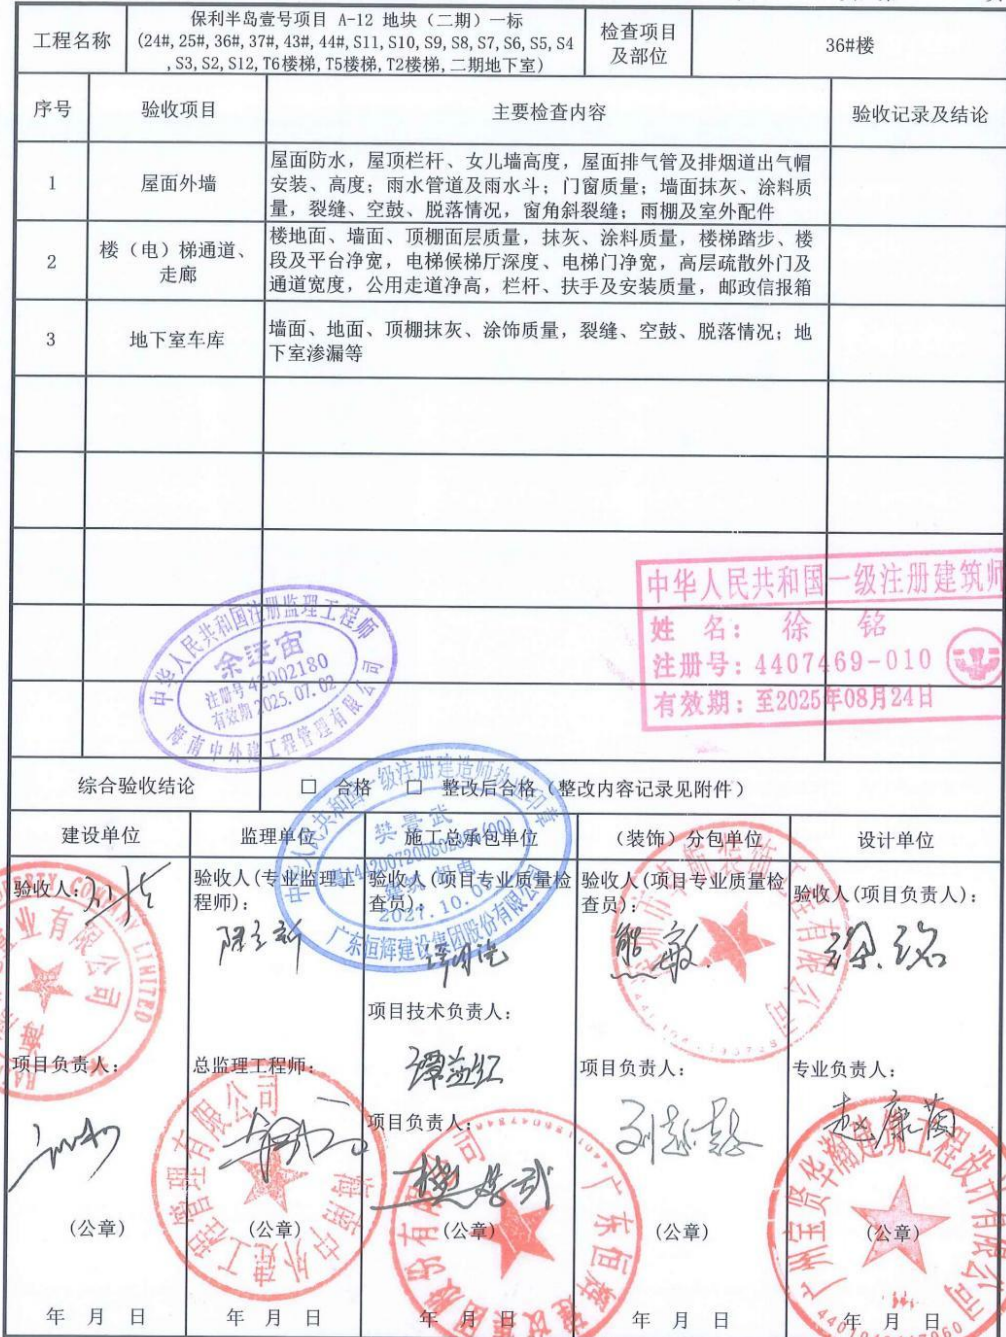 工程名称
保利半岛壹号项目 A-12 地块（二期）一标
(24#,25#,36#,37#,43#,44#,S11,S10,S9,S8,S7,S6,S5,S4
,S3,S2,S12,T6楼梯,T5楼梯,T2楼梯,二期地下室)
检查项目
及部位
36#楼
序号
验收项目
主要检查内容
验收记录及结论
1
屋面外墙
屋面防水，屋顶栏杆、女儿墙高度，屋面排气管及排烟道出气帽
安装、高度；雨水管道及雨水斗；门窗质量；墙面抹灰、涂料质
量，裂缝、空鼓、脱落情况，窗角斜裂缝；雨棚及室外配件
2
楼（电）梯通道、
走廊
楼地面、墙面、顶棚面层质量，抹灰、涂料质量，楼梯踏步、楼
段及平台净宽，电梯候梯厅深度、电梯门净宽，高层疏散外门及
通道宽度，公用走道净高，栏杆、扶手及安装质量，邮政信报箱
3
地下室车库
墙面、地面、顶棚抹灰、涂饰质量，裂缝、空鼓、脱落情况；地
下室渗漏等
中华人民共和国一级注册建筑师
姓 名：徐 铭
注册号：4407469-010
有效期：至2025年08月24日
中华人民共和国注册监理工程师
余运宙
注册号 42002180
有效期 2025.07.02
海南中外建工程管理有限公司
综合验收结论
□ 合格 □ 整改后合格（整改内容记录见附件）
中华人民共和国一级注册建造师执业印章
樊景武
2027.10.0
广东恒辉建设集团股份有限公司
建设单位
监理单位
施工总承包单位
（装饰）分包单位
设计单位
验收人：
验收人(专业监理工
程师)：
验收人（项目专业质量检
查员）：
验收人(项目专业质量检
查员)：
验收人(项目负责人)：
陈立新
熊敏
徐铭
项目技术负责人：
谭益红
项目负责人：
总监理工程师：
项目负责人：
樊景武
项目负责人：
专业负责人：
海南中外建工程管理有限公司
广州宝贤华瀚建筑工程设计有限公司
（公章）
（公章）
（公章）
（公章）
（公章）
年 月 日
年 月 日
年 月 日
年 月 日
年 月 日